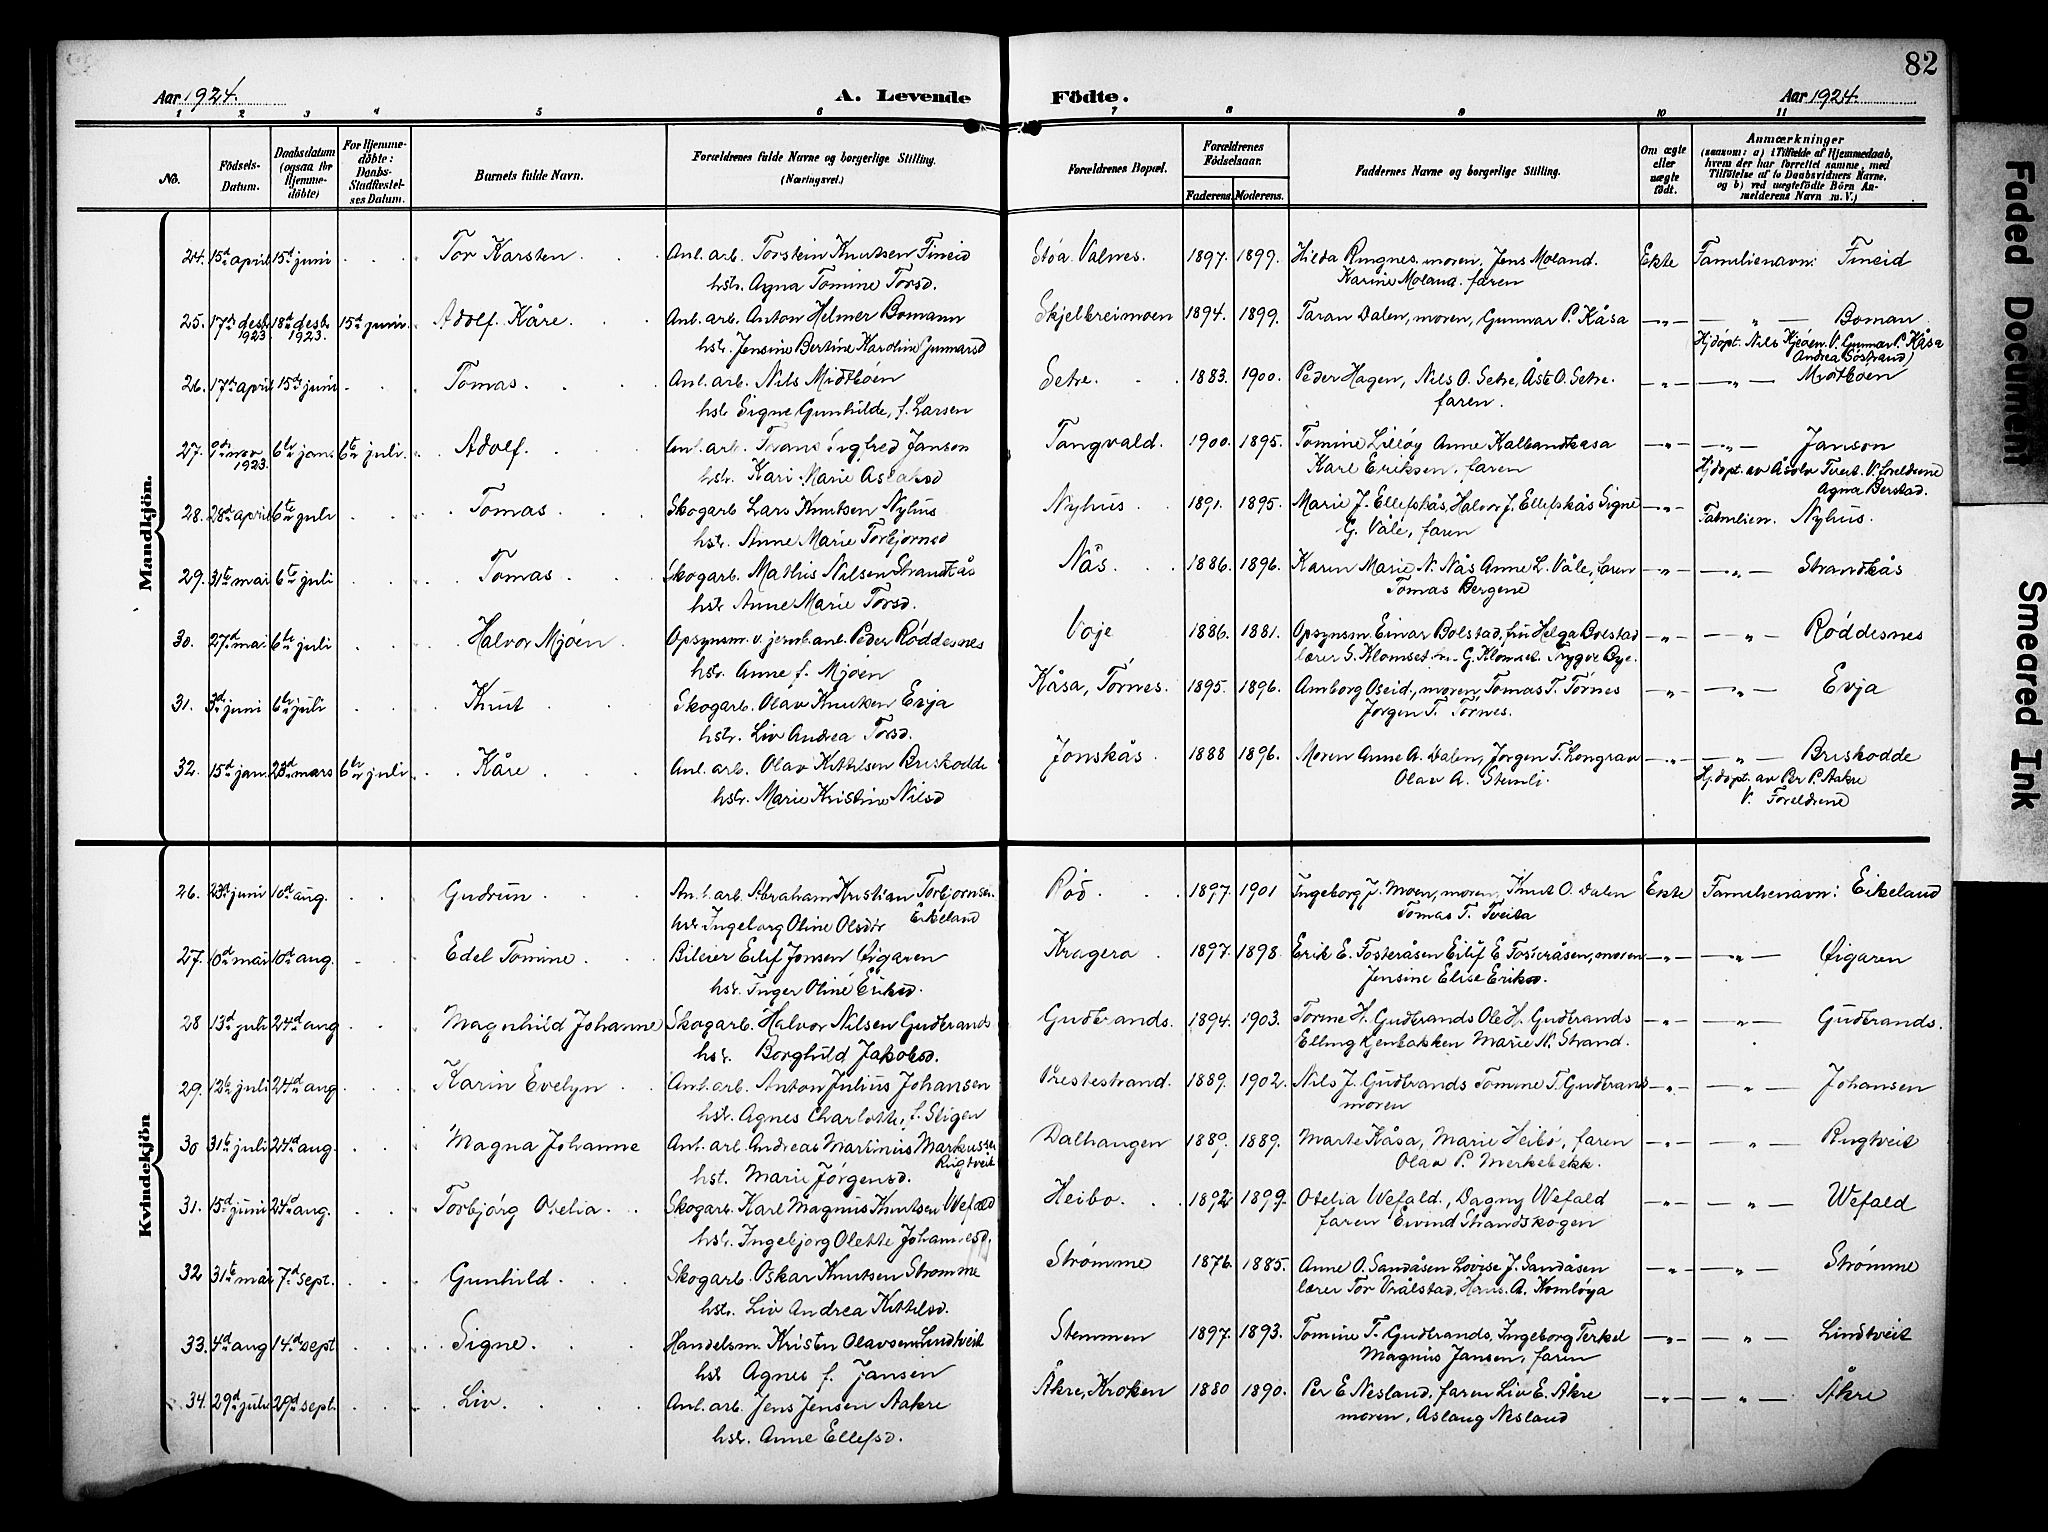 82
Aar 1924.
A. Levende Födte.
Aar 1924.
1 2 3 4 5 6 7 8 9 10 11
No.
Födsels-Datum.
Daabsdatum (ogsaa for Hjemme-döbte)
For Hjemme-döbte: Daabs-Stadfæstel-ses Datum.
Barnets fulde Navn.
Forældrenes fulde Navne og borgerlige Stilling. (Næringsvei.)
Forældrenes Bopæl.
Forældrenes Födselsaar.
Faderens. Moderens.
Faddernes Navne og borgerlige Stilling.
Om ægte eller uægte födt.
Anmærkninger
(saasom: a) i Tilfælde af Hjemmedaab, hvem der har forrettet samme, med Tilföielse af to Daabsvidners Navne, og b) ved uægtefödte Börn An-melderens Navn m. V.)
Mandkjön.
24. 15de april 15de juni Tor Karsten Anl. arb. Torstein Knutsen Fineid Stóa Valnes. 1897. 1899. Hilda Ringnes, moren, Jens Moland. Ekte Familienavn: Fineid
hstr. Agna Tomine Torsd. Karine Moland. faren
25. 17de desbr. 1923. 18de desbr. 1923. 15de juni Adolf Kåre. Anl. arb. Anton Helmer Bomann Skjelbreimoen 1894. 1899. Taran Dalen, moren, Gunnar P. Kåsa —„— — „ — Boman.
hstr. Jensine Bertine Karoline Gunnarsd Hjdöpt. Nils Kjeöen. V. Gunnar P. Kåsa
Andrea Sostrand)
26. 17de april 15de juni Tomas. Anl. arb. Nils Midtböen Setre. 1883. 1900. Peder Hagen, Nils O. Setre, Åste O. Setre. —„— —„— Midtböen
hstr Signe Gunhilde, f. Larsen faren.
27. nov 1923. 6te jan. 6te juli. Adolf. Anl. arb. Frans Janson Tangvald. 1900. 1895. Tomine Lilløy Anne Kalbandkasa —„— —„— Janson
hstr. Kari Marie Aslaksd Karl Eriksen, faren Hjdöpt. av Åsolv Tveit. V. foreldrene
Agna Berstad.
28. 28de april 6te juli Tomas Skogarb Lars Knutsen Nyhus Nyhus 1891. 1895. Marie J. Ellefskås, Halvor J. Ellefskås Signe —„— Familien. Nyhus.
hstr. Anne Marie Torbjornsd G. Våle, faren
29. 31te mai 6te juli Tomas Skogarb. Mathis Nilsen Strandkås Nås. 1886. 1896. Karen Marie N. Nås Anne L. Våle, faren —„— —„— Strandkås
hstr Anne Marie Torsd. Tomas Bergene
30. 27de mai 6te juli Halvor Mjöen Opsynsm. v. jernb.anl. Peder Röddesnes Voje 1886. 1881. Opsynsm. Einar Bolstad, fru Helga Bolstad —„— — „ — Röddesnes
hstr. Anne f. Mjöen lærer S. Klomset. fru G. Klomset. Trygve Bye.
31. 3de juni 6te juli Knut Skogarb. Olav Knutsen Evja Kåsa, Tórnes. 1895. 1896. Amborg Oseid, moren, Tomas T. Törnes —„— —„— Evja
hstr. Liv Andrea Torsd. Jörgen T. Törnes.
32. 15de jan. 23de mars 6te juli Kåre Anl. arb. Olav Kittilsen Briskodde Jonskås. 1888 1896. Moren Anne A. Dalen, Jörgen T. Longrav —„— —„— Briskodde
hstr. Marie Kristine Nilsd Olav A. Stemli. Hjdöpt. av Per P. Aakre
V. Foreldrene
Kvindekjön
26. 23de juni 10de aug. Gudrun Anl. arb. Abraham Kristian Torbjornsen Röd. 1897. 1901 Ingeborg J. Moen, moren, Knut O. Dalen Ekte Familienavn: Eikeland
hstr Ingeborg Oline Olsdtr Eikeland Tomas T. Tveita
27. 10de mai 10de aug. Edel Tomine Bileier Eilif Jensen Øigaren Kragerø 1897. 1898. Erik E. Fosteråsen Eilif E Fosteråsen, moren —„— —„— Øigaren
hstr. Inger Oline Eriksd. Jensine Elise Eriksd.
28 13de juli 24de aug Magnhild Johanne Skogarb. Halvor Nilsen Gudbrands Gudbrands. 1894. 1903. Torine H. Gudbrands Ole H. Gudbrands —„— —„— Gudbrands.
hstr. Borghild Jakobsd. Elling Kjenbakken Marie N. Strand.
29. 12te juli 24de aug Karin Evelyn Anl. arb. Anton Julius Johansen Prestestrand. 1889. 1902. Nils J. Gudbrands Tomine T. Gudbrands —„— — „ — Johansen
hstr. Agnes Charlotte, f. Stigen moren
30 31te juli 24de aug. Magna Johanne Anl. arb. Andreas Martinius Markussen Dalhaugen 1880. 1889. Marte Kåsa, Marie Heibö, faren —„— — „ — Rugtveit
hst. Marie Jörgensd. Rugtveit Olav P. Merkebekk.
31. 15de juni 24de aug. Torbjörg Otelia Skogarb. Karl Magnus Knutsen Wefald Heibo. 1892 1899. Otelia Wefald, Dagny Wefald —„— — „ — Wefald
hstr. Ingebjorg Olette Johannesd. faren Eivind Strandskogen
32 31te mai 7de sept. Gunhild Skogarb. Oskar Knutsen Strømme Strømme 1876. 1885. Anne O. Sandåsen Lovise J. Sandåsen —„— — „ — Strømme
hstr. Liv Andrea Kittilsd. lærer Tor Vrålstad, Hans. A. Homlöya
33. 4de aug 14de sept Signe. Handelsm. Kristen Olavsen Lindtveit Stemmen 1897. 1893. Tomine T. Gudbrands, Ingeborg Terkel —„— — „ — Lindtveit
hstr Agnes f. Jansen Magnus Jansen, faren
34. 29de juli 29de sept. Liv. Anl. arb. Jens Jensen Aakre Åkre, Kroken 1880 1890. Per E Nesland, faren Liv E. Åkre —„— — „ — Åkre
hstr. Anne Ellefsd. moren, Aslaug Nesland
Faded Document
Smeared Ink